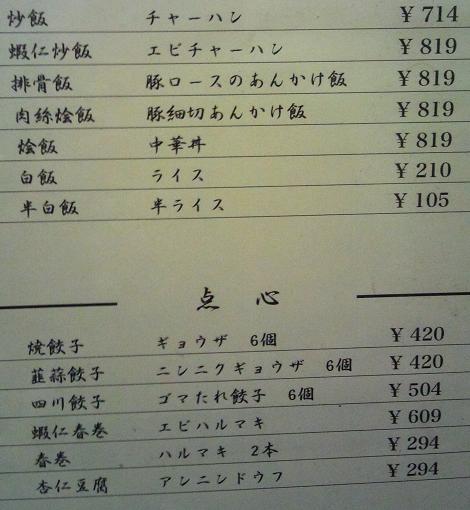 炒飯 チャーハン ¥714
蝦仁炒飯 エビチャーハン ¥819
排骨飯 豚ロースのあんかけ飯 ¥819
肉絲燴飯 豚細切あんかけ飯 ¥819
燴飯 中華丼 ¥819
白飯 ライス ¥210
半白飯 半ライス ¥105
点心
焼餃子 ギョウザ 6個 ¥420
韮蒜餃子 ニンニクギョウザ 6個 ¥420
四川餃子 ゴマたれ餃子 6個 ¥504
蝦仁春巻 エビハルマキ ¥609
春巻 ハルマキ 2本 ¥294
杏仁豆腐 アンニンドウフ ¥294